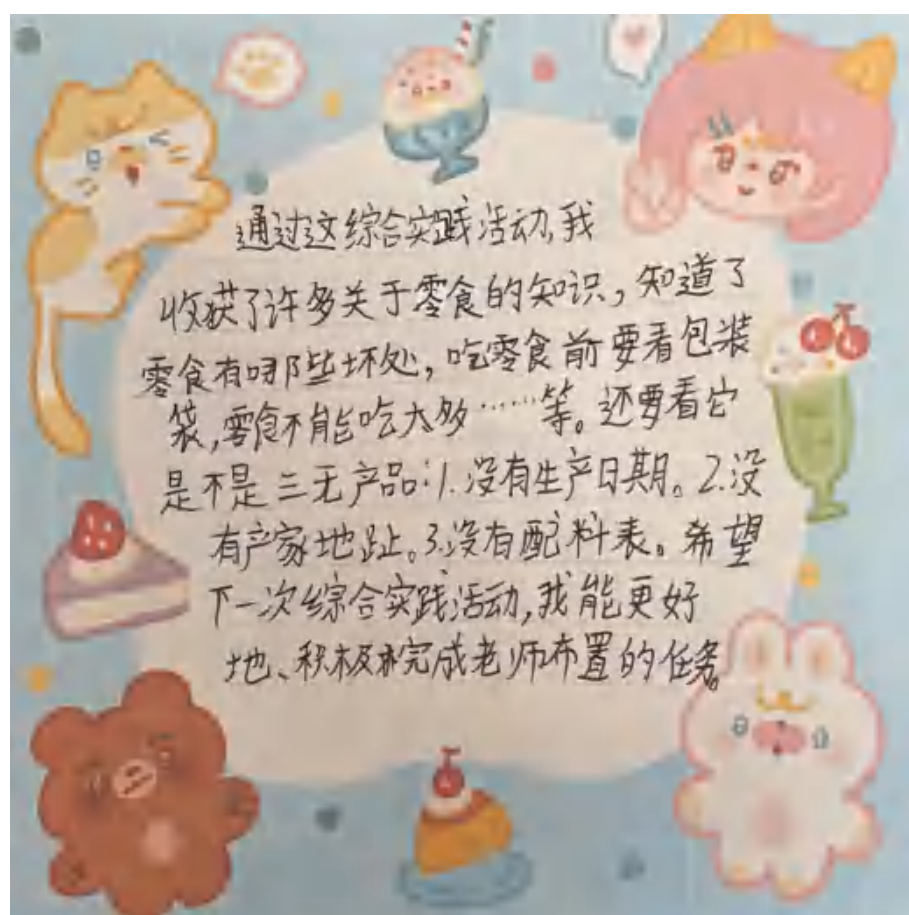 通过这综合实践活动,我
收获了许多关于零食的知识,知道了
零食有哪些坏处,吃零食前要看包装
袋,零食不能吃太多……等。还要看它
是不是三无产品:1.没有生产日期。2.没
有产家地址。3.没有配料表。希望
下一次综合实践活动,我能更好
地、积极来完成老师布置的任务。